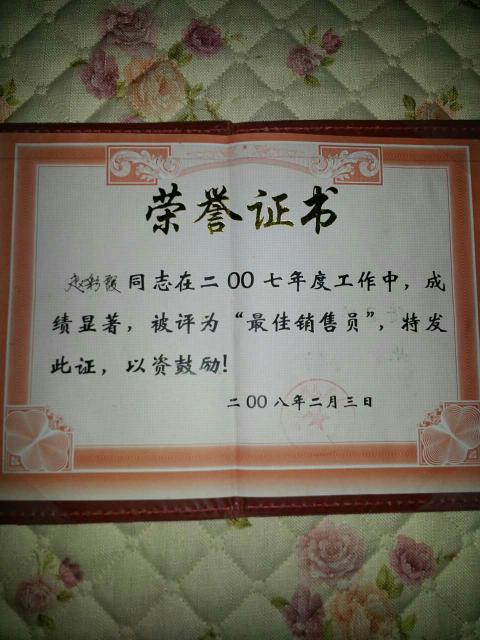 荣誉证书
赵彩霞同志在二00七年度工作中，成
绩显著，被评为“最佳销售员”，特发
此证，以资鼓励！
二00八年二月三日